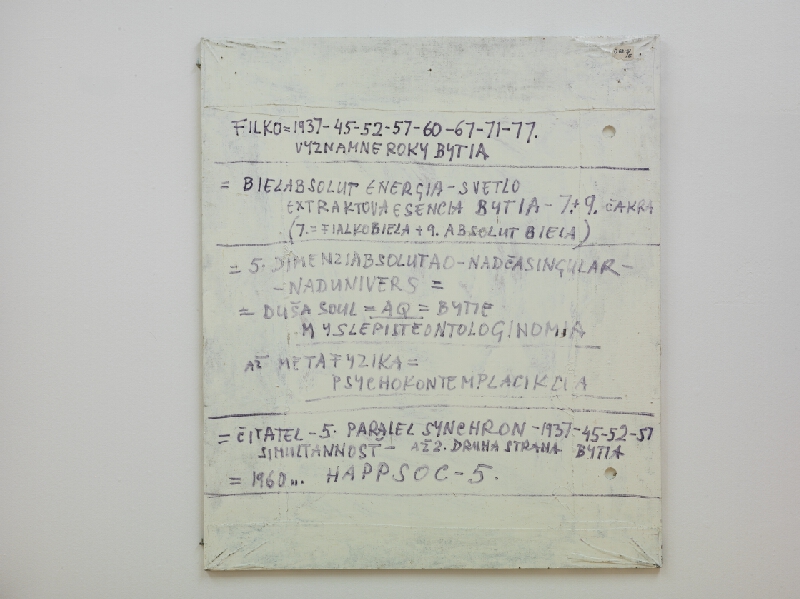 FILKO=1937-45-52-57-60-67-71-77.
VÝZNAMNE ROKY BYTIA
= BIELABSOLUT ENERGIA-SVETLO
EXTRAKTOVAESENCIA BYTIA-7.+9. ČAKRA
(7.=FIALKOBIELA+9. ABSOLUT BIELA)
= 5. DIMENZIABSOLUTAO-NADČASINGULAR-
-NADUNIVERS =
= DUŠA SOUL = AQ = BYTIE
MYSLEPISTEONTOLOGINOMIA
AŽ METAFYZIKA=
= ČITATEL-5. PARALEL SYNCHRON-1937-45-52-57
SIMULTANNOSŤ- AŽ 2. DRUHA STRANA BYTIA
= 1960... HAPPSOC-5.